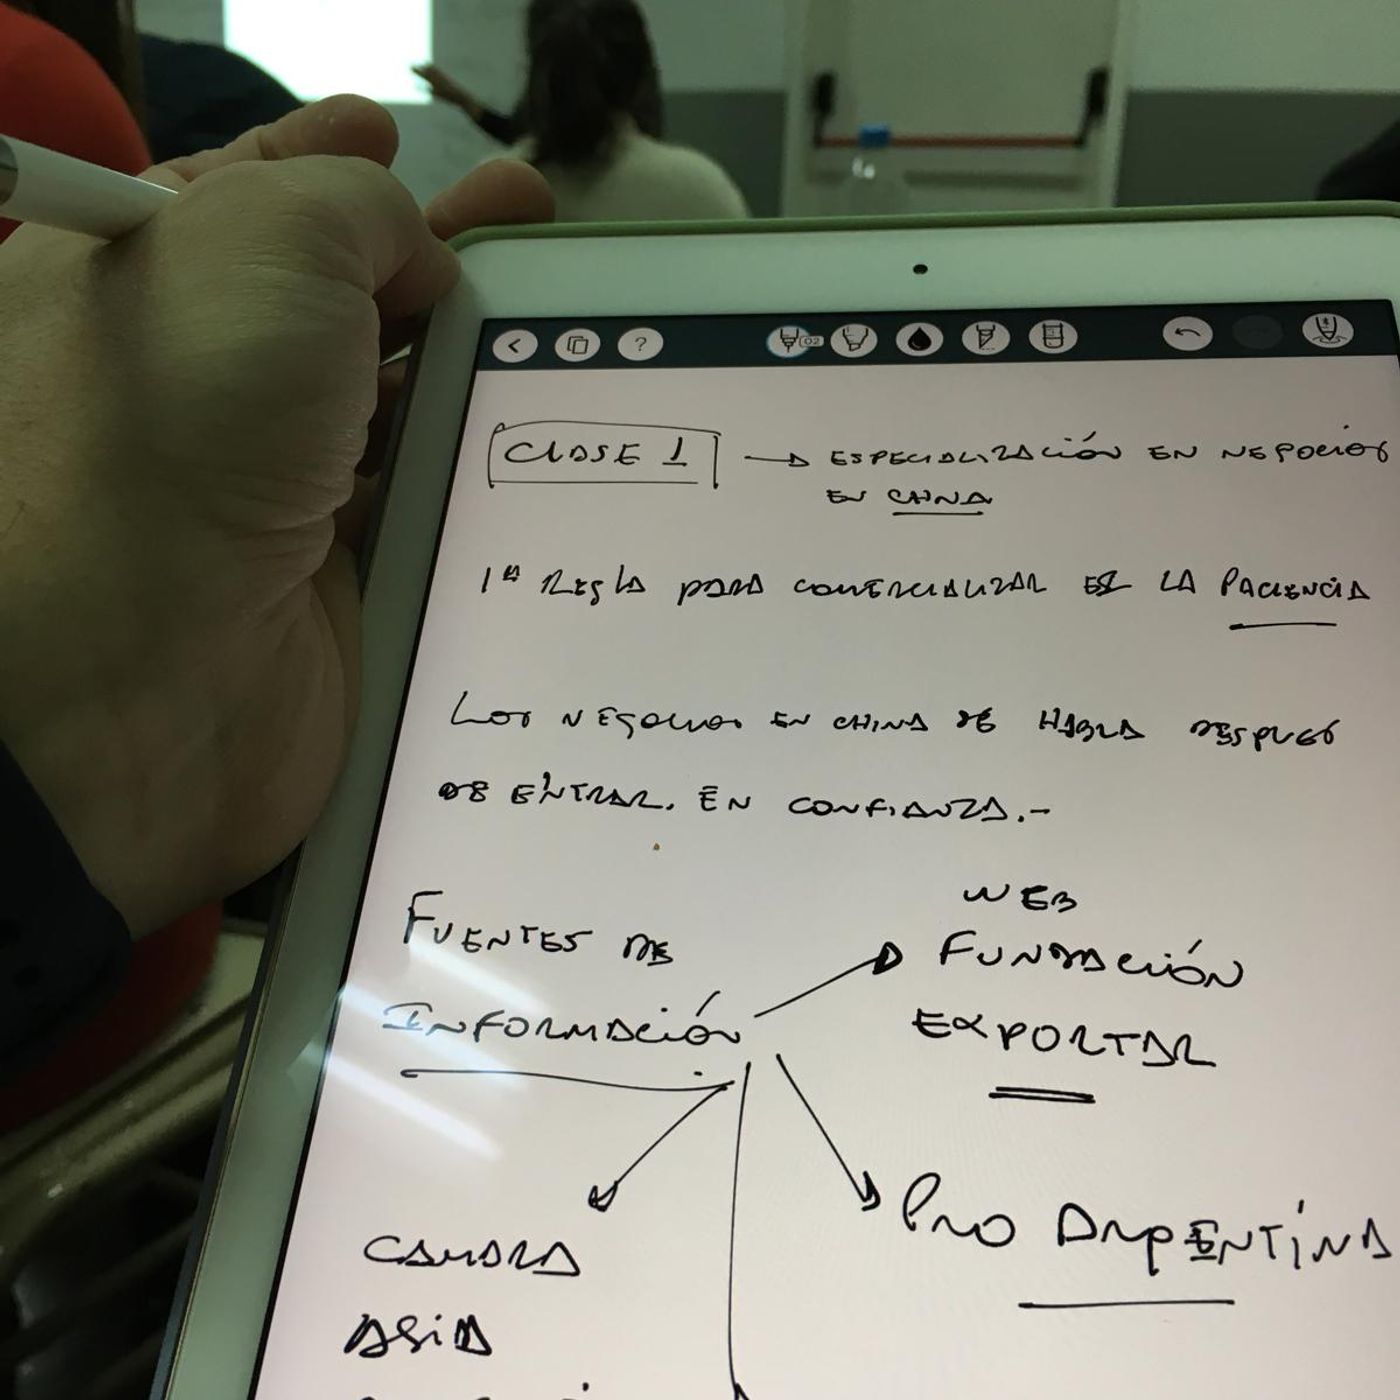 CLASE 1 → ESPECIALIZACIÓN EN NEGOCIOS
EN CHINA
1ª REGLA PARA COMERCIALIZAR ES LA PACIENCIA
LOS NEGOCIOS EN CHINA SE HABLA DESPUES
DE ENTRAR. EN CONFIANZA.-
FUENTES DE
INFORMACIÓN
WEB
FUNDACIÓN
EXPORTAR
PRO ARGENTINA
CAMARA
ASIA